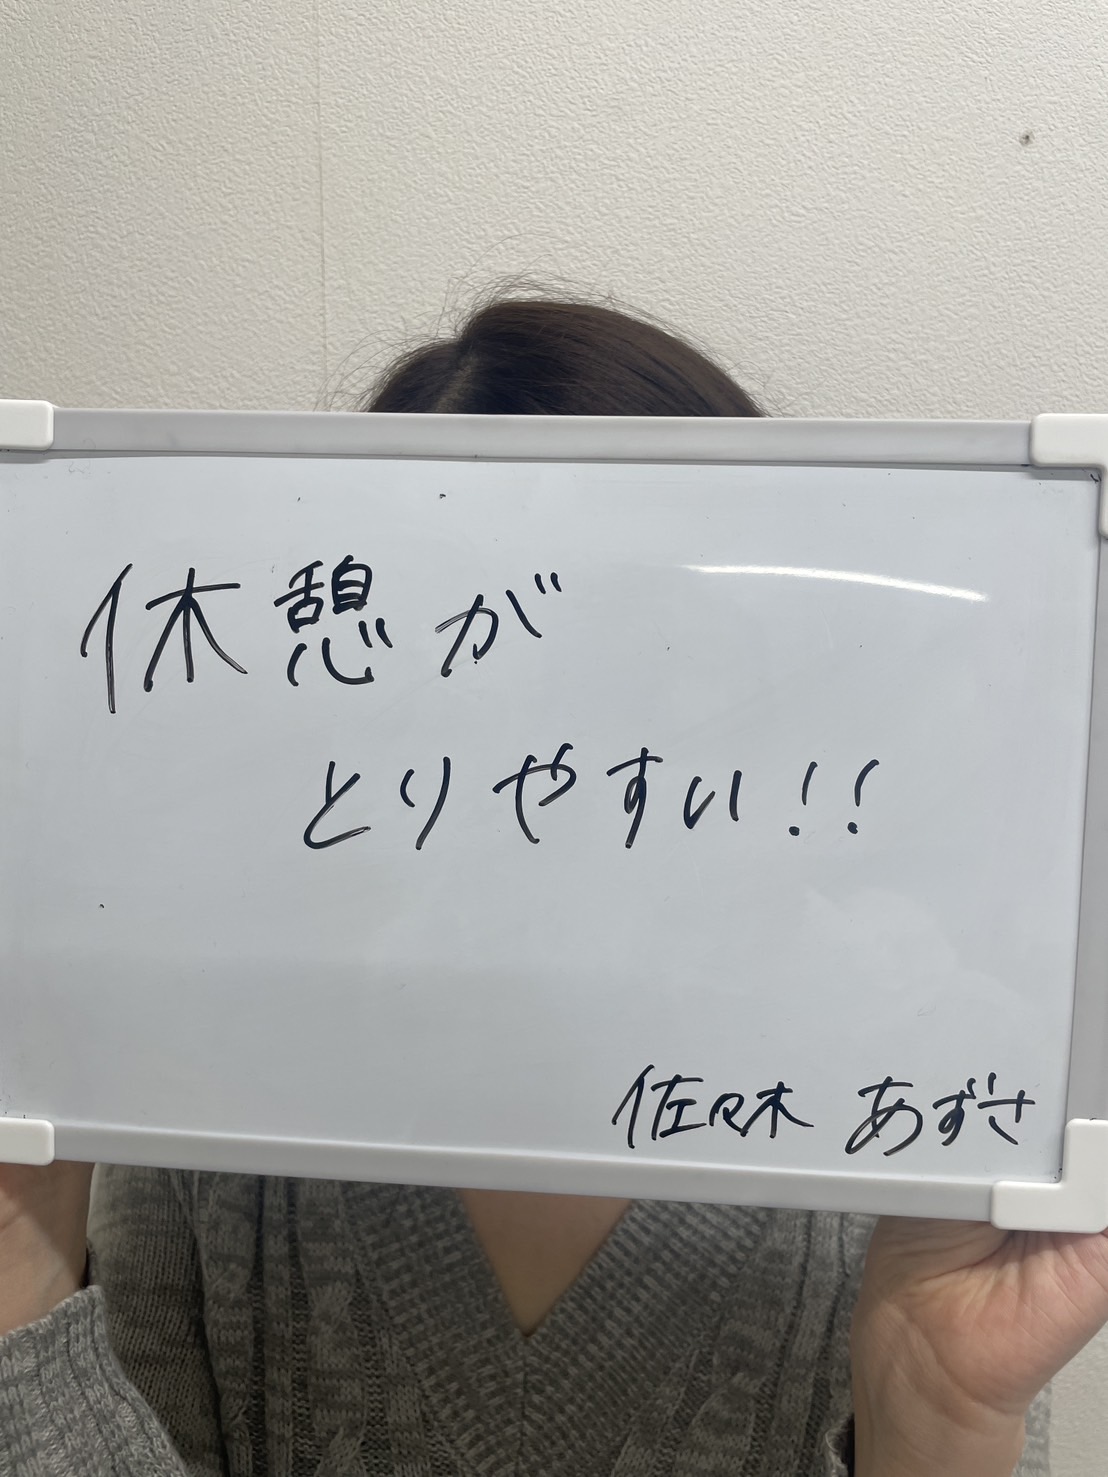 休憩が
とりやすい!!
佐々木 あずさ